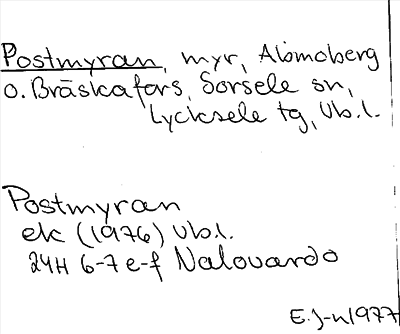 Postmyran, myr, Alsmoberg
o. Bräskafors, Sorsele sn,
Lycksele tg, Vb.l.
Postmyran
ek (1976) Vb.l.
24H 6-7 e-f Nalovardo
E.J-n 1977